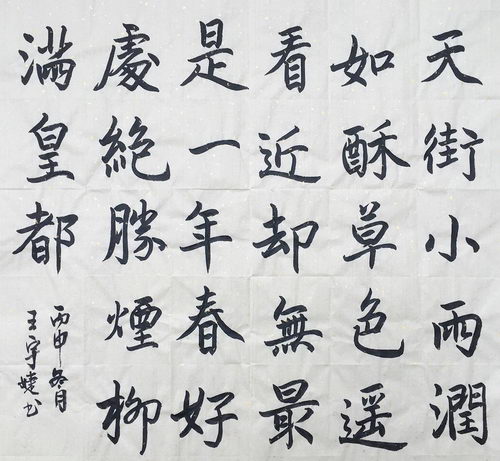 天街小雨潤
如酥草色遥
看近却無最
是一年春好
處絶勝煙柳
滿皇都
丙申冬月
王宇婕书